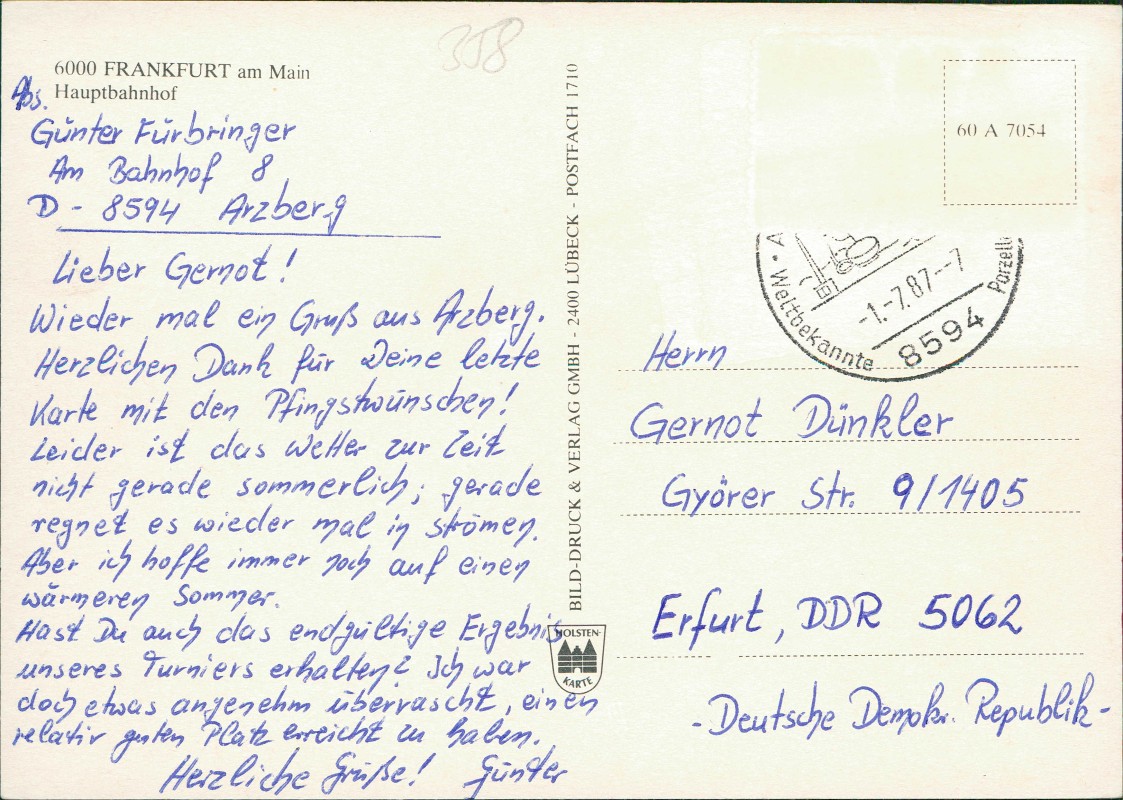 358
6000 FRANKFURT am Main
Hauptbahnhof
Abs.
Günter Fürbringer
Am Bahnhof 8
D - 8594 Arzberg
Lieber Gernot!
Wieder mal ein Gruß aus Arzberg.
Herzlichen Dank für Deine letzte
Karte mit den Pfingstwünschen!
Leider ist das Wetter zur Zeit
nicht gerade sommerlich; gerade
regnet es wieder mal in Strömen.
Aber ich hoffe immer noch auf einen
wärmeren Sommer.
Hast Du auch das endgültige Ergebnis
unseres Turniers erhalten? Ich war
doch etwas angenehm überrascht, einen
relativ guten Platz erreicht zu haben.
Herzliche Grüße! Günter
BILD-DRUCK & VERLAG GMBH - 2400 LÜBECK - POSTFACH 1710
HOLSTEN-
KARTE
60 A 7054
A
• Weltbekannte
-1.-7.87--7
8594
Porzell
Herrn
Gernot Dünkler
Györer Str. 9/1405
Erfurt, DDR 5062
- Deutsche Demokr. Republik -